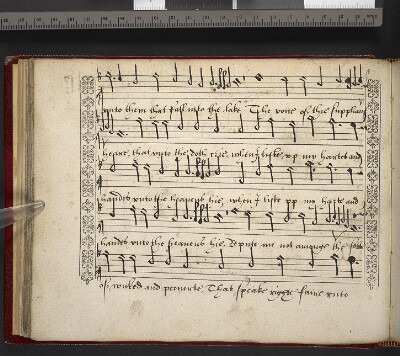 vnto them that fall into the lake. The voice of thie suppliant
heare, that vnto the doth crie, when I lifte vp my handes and
handes vnto the heavens hie, when I lifte vp my harte and
handes vnto the heavens hie, Repute me not amongst the sorte
of wicked and perverte, That speake right faire vnto